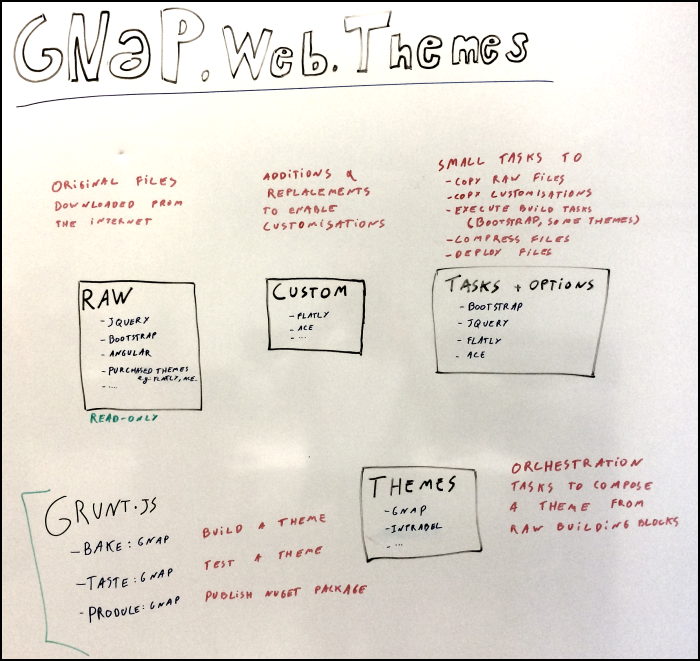 GNaP.Web.Themes
ORIGINAL FILES
DOWNLOADED FROM
THE INTERNET
ADDITIONS &
REPLACEMENTS
TO ENABLE
CUSTOMISATIONS
SMALL TASKS TO
- COPY RAW FILES
- COPY CUSTOMISATIONS
- EXECUTE BUILD TASKS
(BOOTSTRAP, SOME THEMES)
- COMPRESS FILES
- DEPLOY FILES
RAW
- JQUERY
- BOOTSTRAP
- ANGULAR
- PURCHASED THEMES
e.g. FLATLY, ACE.
- ....
READ-ONLY
CUSTOM
- FLATLY
- ACE
- ...
TASKS + OPTIONS
- BOOTSTRAP
- JQUERY
- FLATLY
- ACE
GRUNT.JS
- BAKE: GNAP
BUILD A THEME
- TASTE: GNAP
TEST A THEME
- PRODUCE: GNAP
PUBLISH NUGET PACKAGE
THEMES
- GNAP
- INFRABEL
- ...
ORCHESTRATION
TASKS TO COMPOSE
A THEME FROM
RAW BUILDING BLOCKS